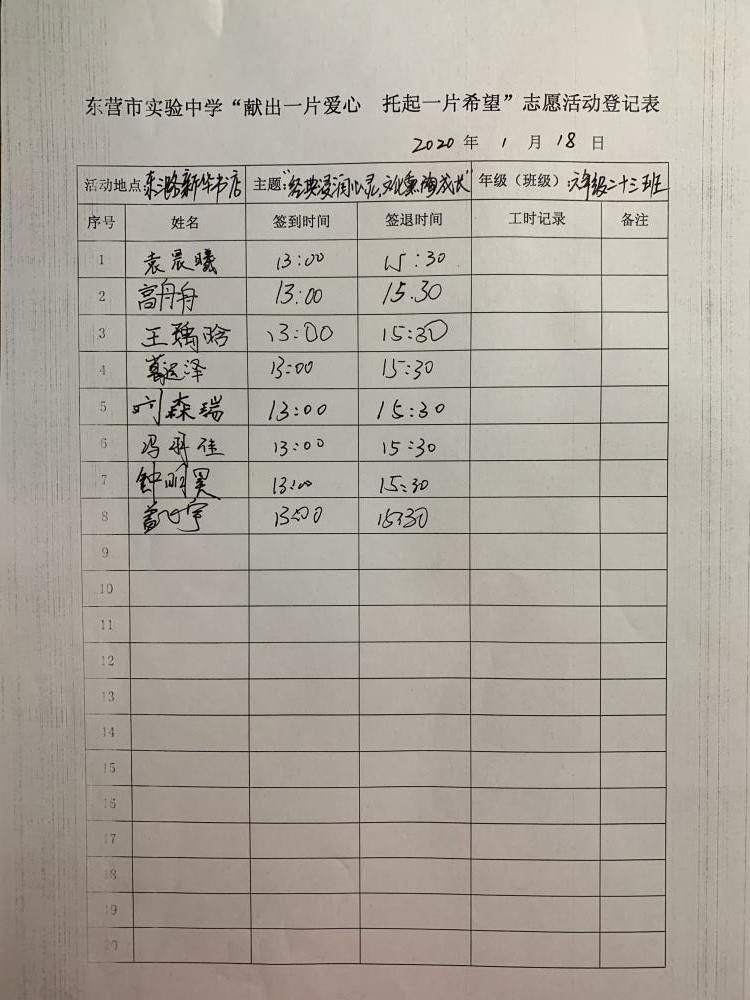 东营市实验中学“献出一片爱心 托起一片希望”志愿活动登记表
2020 年 1 月 18 日
活动地点:东三路新华书店 主题:“经典浸润心灵,文化熏陶成长” 年级(班级):六年级二十三班
序号 姓名 签到时间 签退时间 工时记录 备注
1 袁晨曦 13:00 15:30
2 高舟舟 13:00 15.30
3 王瑀晗 13:00 15:30
4 13:00 15:30
5 刘森瑞 13:00 15:30
6 冯羽佳 13:00 15:30
7 钟明昊 13:00 15:30
8 13:00 15:30
9
10
11
12
13
14
15
16
17
18
19
20